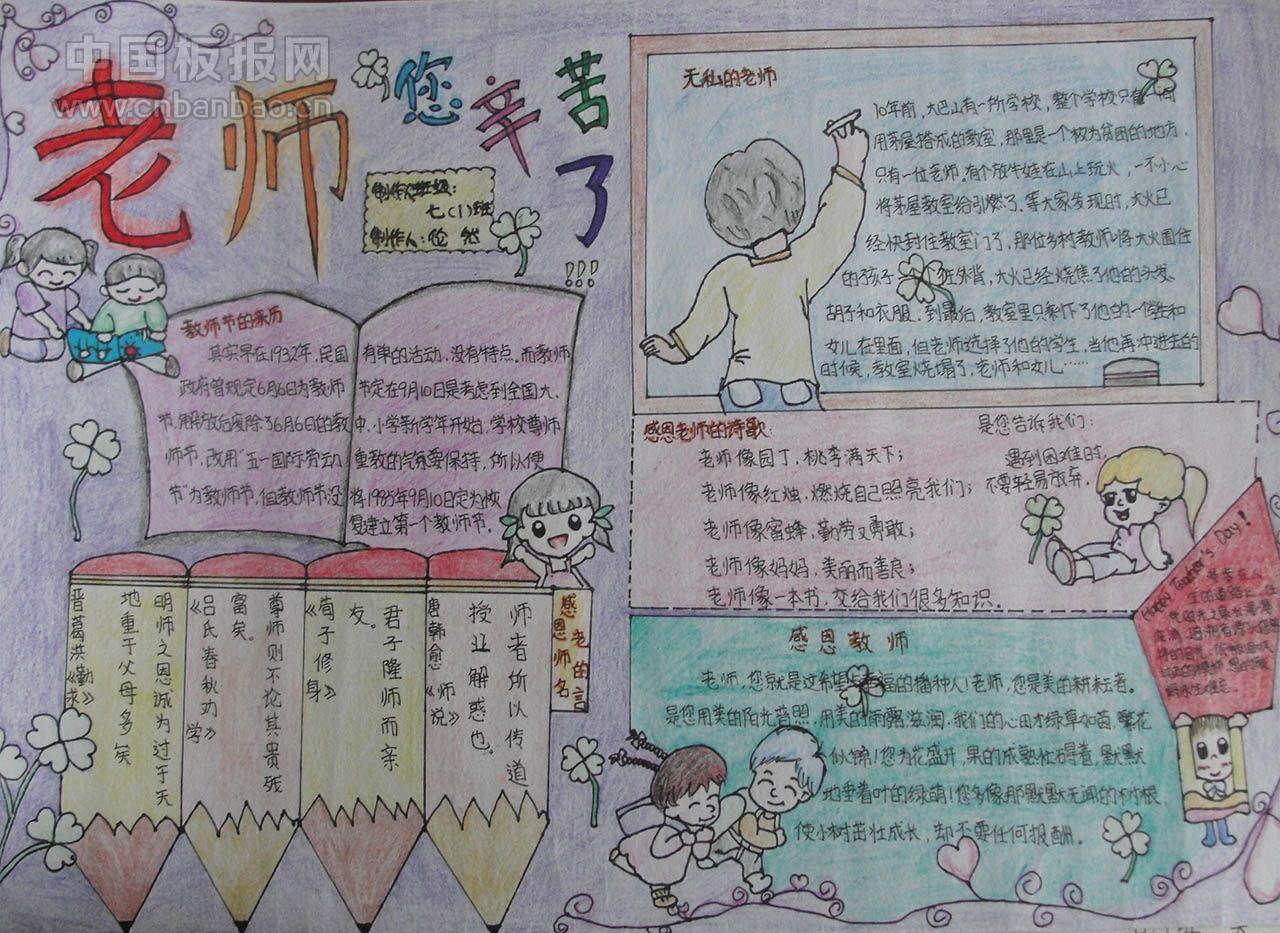 中国板报网
www.cnbanbao.cn
老师您辛苦了!!!
制作班级:
七(1)班
制作人:
教师节的来历
其实早在1932年,民国
政府曾规定6月6日为教师
节,解放后废除了6月6日的教
师节,改用"五一国际劳动
节"为教师节,但教师节没
有单的活动,没有特点。而教师
节定在9月10日是考虑到全国大、
中、小学新学年开始,学校尊师
重教的气氛要保持,所以便
将1985年9月10日定为恢
复建立第一个教师节。
无私的老师
10年前,大巴山有一所学校,整个学校只有一间
用茅屋搭成的教室,那里是一个极为贫困的地方,
只有一位老师。有个放牛娃在山上玩火,一不小心
将茅屋教室给引燃了。等大家发现时,大火已
经快封住教室门了,那位乡村教师将大火围住
的孩子一个个往外背,大火已经烧焦了他的头发、
胡子和衣服。到最后,教室里只剩下了他的一个学生和
女儿在里面,但老师选择了他的学生,当他再冲进去的
时候,教室烧塌了,老师和女儿……
感恩老师的诗歌:
老师像园丁,桃李满天下;
老师像红烛,燃烧自己照亮我们;
老师像蜜蜂,勤劳又勇敢;
老师像妈妈,美丽而善良;
老师像一本书,交给我们很多知识。
是您告诉我们:
遇到困难时,
不要轻易放弃。
Happy Teacher's Day!
感恩老师的名言
师者所以传道
授业解惑也。
唐韩愈《师说》
君子隆师而亲
友。
《荀子修身》
尊师则不论其贵残
富矣。
《吕氏春秋功学》
明师之恩诚为过于天
地重于父母多矣
晋葛洪《勤求》
感恩教师
老师,您就是这希望与幸福的播种人!老师,您是美的耕耘者。
是您用美的阳光普照,用美的雨露滋润,我们的心田才绿草如茵,繁花
似锦!您为花盛开,果的成熟忙碌着,默默
地垂着叶的绿荫!您多像那默默无闻的树根,
使小树茁壮成长,却不要任何报酬。